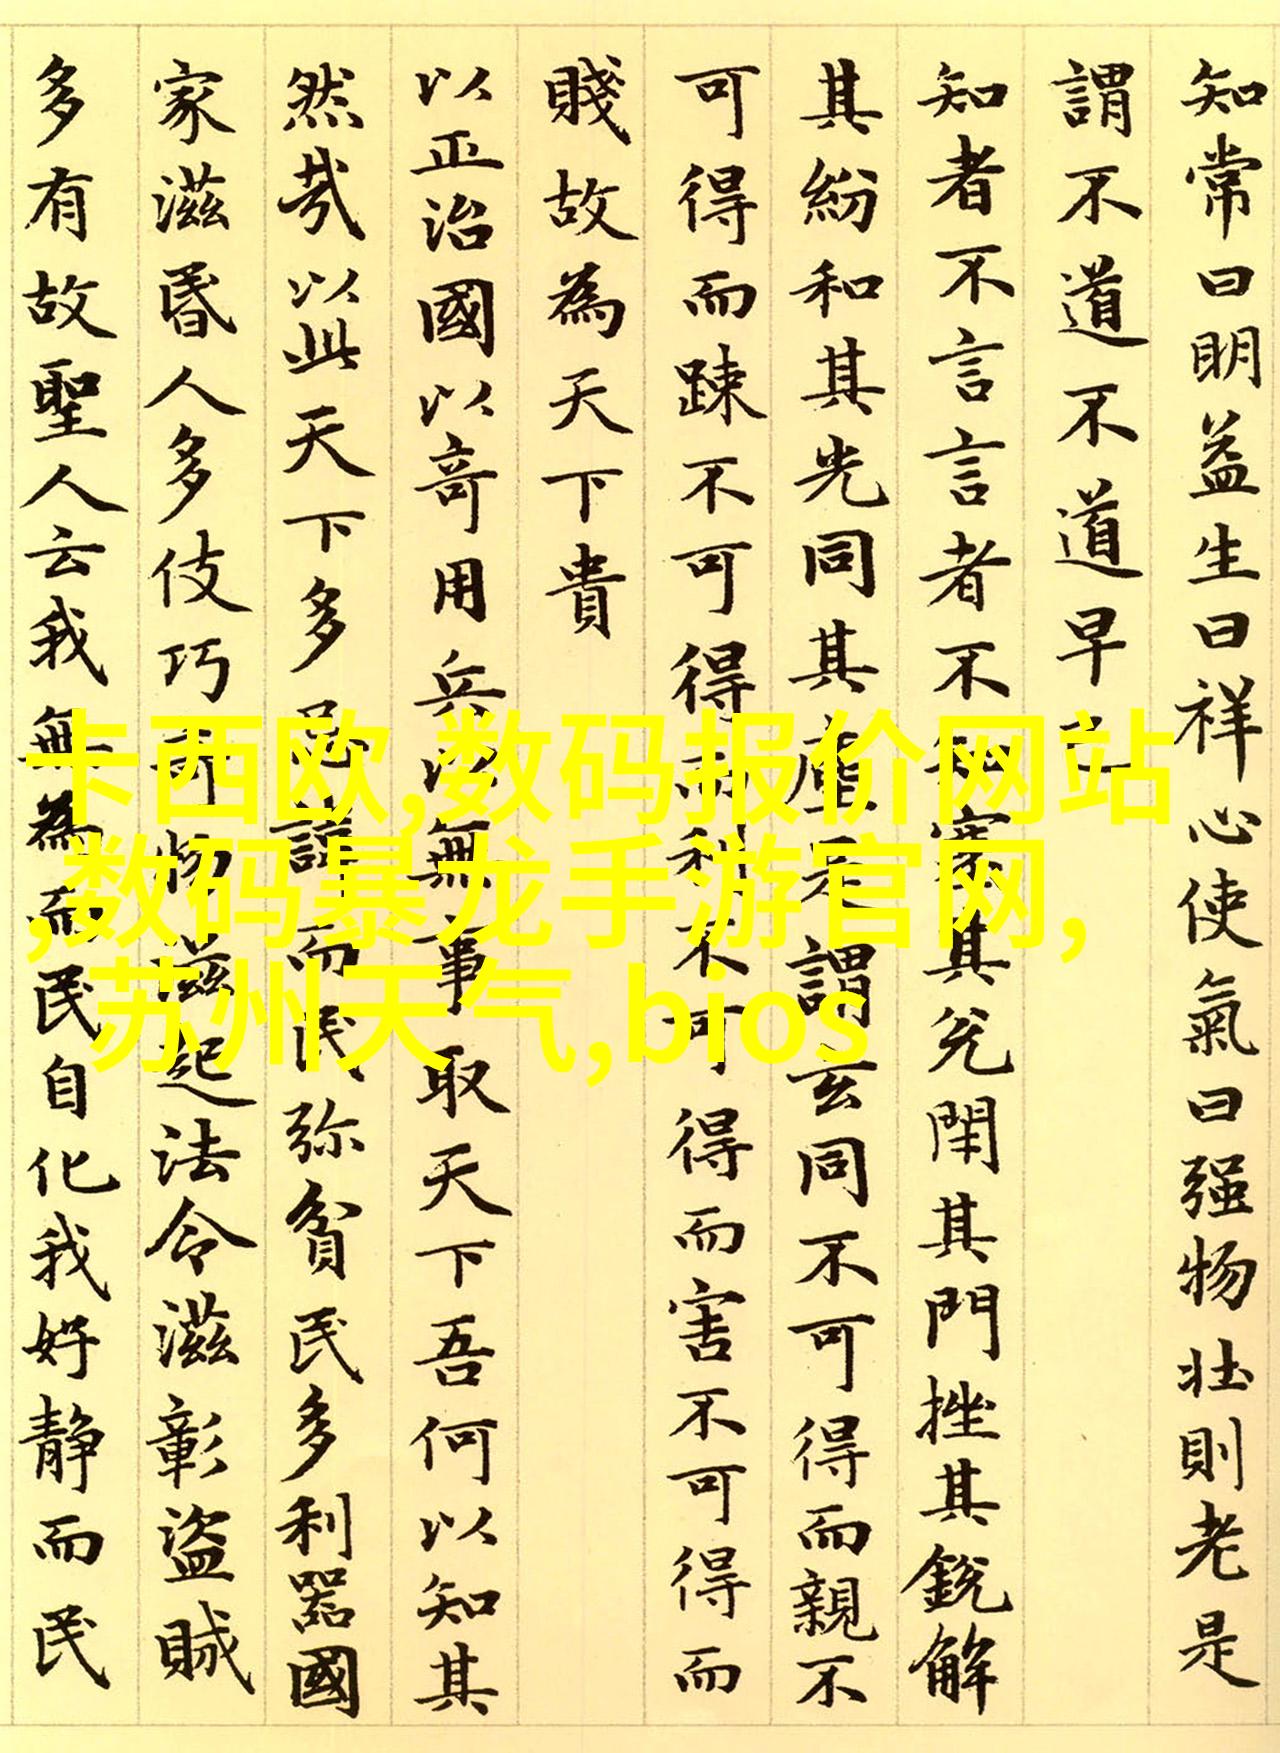 知常曰明益生曰祥心使氣曰强物壯則老是
謂不道不道早已
知者不言言者不知塞其兌閇其門挫其銳解
其紛和其光同其塵是謂玄同不可得而親不
可得而踈不可得而利不可得而害不可得而
賤故為天下貴
以正治國以竒用兵以無事取天下吾何以知其
然㢤以此天下多忌諱而民弥貧民多利器國
家滋昬人多伎巧奇物滋起法令滋彰盜賊
多有故聖人云我無為而民自化我好静而民
卡西欧,数码报价网站
,数码暴龙手游官网,
苏州天气,bios